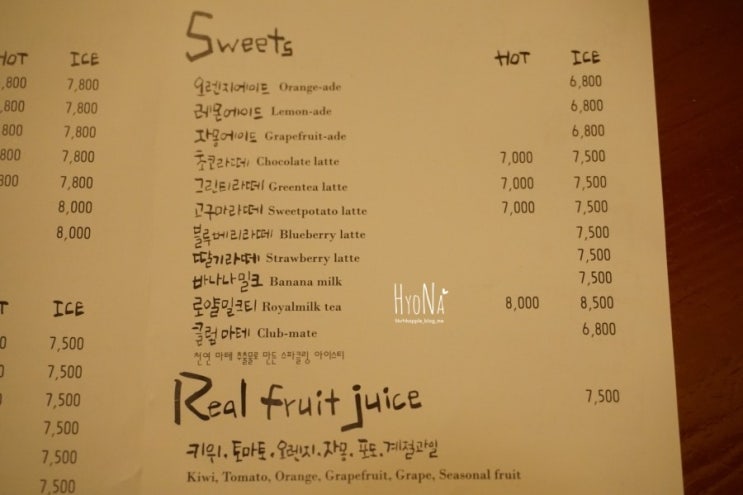 HOT ICE
,800 7,800
,800 7,800
800 7,800
800 7,800
800 7,800
8,000
8,000
T ICE
7,500
7,500
7,500
7,500
7,500
7,500
Sweets HOT ICE
오렌지에이드 Orange-ade 6,800
레몬에이드 Lemon-ade 6,800
자몽에이드 Grapefruit-ade 6,800
초코라떼 Chocolate latte 7,000 7,500
그린티라떼 Greentea latte 7,000 7,500
고구마라떼 Sweetpotato latte 7,000 7,500
블루베리라떼 Blueberry latte 7,500
딸기라떼 Strawberry latte 7,500
바나나밀크 Banana milk 7,500
로얄밀크티 Royalmilk tea 8,000 8,500
클럽 마테 Club-mate 6,800
천연 마테 추출물로 만든 스파클링 아이스티
Real fruit juice 7,500
키위. 토마토. 오렌지. 자몽. 포도. 계절과일
Kiwi, Tomato, Orange, Grapefruit, Grape, Seasonal fruit
HYONA